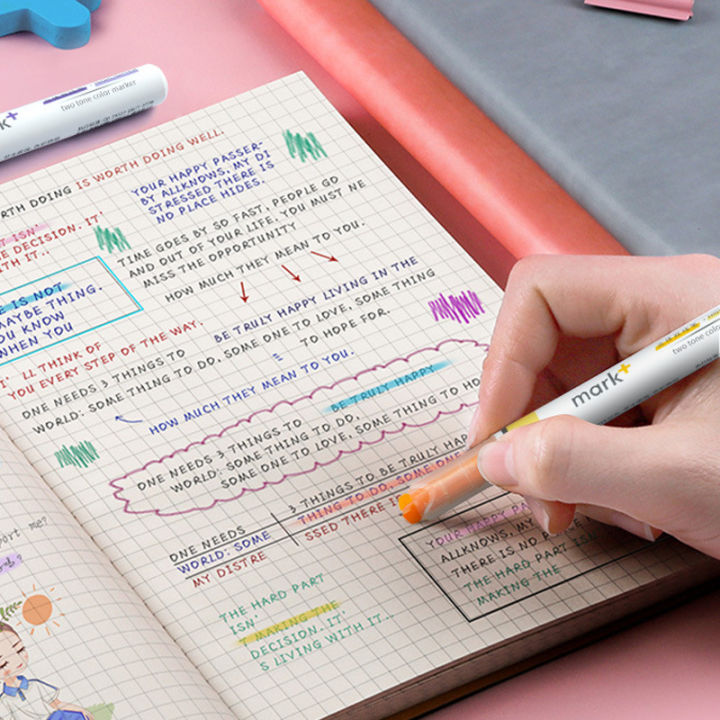 mark+
two tone color marker
RTH DOING IS WORTH DOING WELL.
YOUR HAPPY PASSER-
BY ALLKNOWS, MY DI
STRESSED THERE IS
NO PLACE HIDES.
T ISN'
E DECISION. IT'
ITH IT..
TIME GOES BY SO FAST, PEOPLE GO
AND OUT OF YOUR LIFE. YOU MUST NE
MISS THE OPPORTUNITY
HOW MUCH THEY MEAN TO YOU.
E IS NOT
MAYBE THING.
OU KNOW
WHEN YOU
BE TRULY HAPPY LIVING IN THE
I' LL THINK OF
YOU EVERY STEP OF THE WAY.
ONE NEEDS 3 THINGS TO
WORLD: SOME THING TO DO, SOME ONE TO LOVE, SOME THING
TO HOPE FOR.
HOW MUCH THEY MEAN TO YOU.
BE TRULY HAPPY
ONE NEEDS 3 THINGS TO
WORLD: SOME THING TO DO,
SOME ONE TO LOVE, SOME THING TO HO
3 THINGS TO BE TRULY HAP
THING TO DO, SOME ONE
SSED THERE I
ONE NEEDS
WORLD: SOME
MY DISTRE
YOUR HAPPY PA
ALLKNOWS, MY
THERE IS NO PL
THE HARD PART ISN'
MAKING THE
THE HARD PART
ISN'
T MAKING THE
DECISION. IT'
S LIVING WITH IT..
port me?
mark+
two tone color